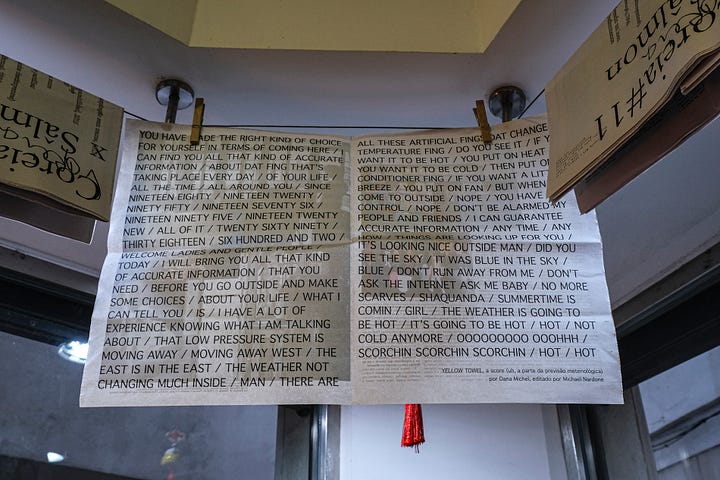 Coreia
Salmon
YOU HAVE MADE THE RIGHT KIND OF CHOICE
FOR YOURSELF IN TERMS OF COMING HERE / I
CAN FIND YOU ALL THAT KIND OF ACCURATE
INFORMATION / ABOUT DAT FING THAT'S
TAKING PLACE EVERY DAY / OF YOUR LIFE /
ALL THE TIME / ALL AROUND YOU / SINCE
NINETEEN EIGHTY / NINETEEN TWENTY /
NINETY FIFTY / NINETEEN SEVENTY SIX /
NINETEEN NINETY FIVE / NINETEEN TWENTY
NEW / ALL OF IT / TWENTY SIXTY NINETY /
THIRTY EIGHTEEN / SIX HUNDRED AND TWO /
WELCOME LADIES AND GENTLE PEOPLE
TODAY / I WILL BRING YOU ALL THAT KIND
OF ACCURATE INFORMATION / THAT YOU
NEED / BEFORE YOU GO OUTSIDE AND MAKE
SOME CHOICES / ABOUT YOUR LIFE / WHAT I
CAN TELL YOU / IS / I HAVE A LOT OF
EXPERIENCE KNOWING WHAT I AM TALKING
ABOUT / THAT LOW PRESSURE SYSTEM IS
MOVING AWAY / MOVING AWAY WEST / THE
EAST IS IN THE EAST / THE WEATHER NOT
CHANGING MUCH INSIDE / MAN / THERE ARE
ALL THESE ARTIFICIAL FINGS DAT CHANGE
TEMPERATURE FING / DO YOU SEE IT / IF Y
WANT IT TO BE HOT / YOU PUT ON HEAT
YOU WANT IT TO BE COLD / THEN PUT O
CONDITIONER FING / IF YOU WANT A LIT
BREEZE / YOU PUT ON FAN / BUT WHEN
COME OUTSIDE / NOPE / YOU HAVE
CONTROL / NOPE / DON'T BE ALARMED MY
PEOPLE AND FRIENDS / I CAN GUARANTEE
ACCURATE INFORMATION / ANY TIME / ANY
HOW / THINGS ARE LOOKING UP FOR YOU /
IT'S LOOKING NICE OUTSIDE MAN / DID YOU
SEE THE SKY / IT WAS BLUE IN THE SKY /
BLUE / DON'T RUN AWAY FROM ME / DON'T
ASK THE INTERNET ASK ME BABY / NO MORE
SCARVES / SHAQUANDA / SUMMERTIME IS
COMIN / GIRL / THE WEATHER IS GOING TO
BE HOT / IT'S GOING TO BE HOT / HOT / NOT
COLD ANYMORE / OOOOOOOOO OOOHHH /
SCORCHIN SCORCHIN SCORCHIN / HOT / HOT
YELLOW TOWEL, a score (uh, a parta da previsão meteorológica)
por Dana Michel, editado por Michael Nardone
Coreia #11
Salmon